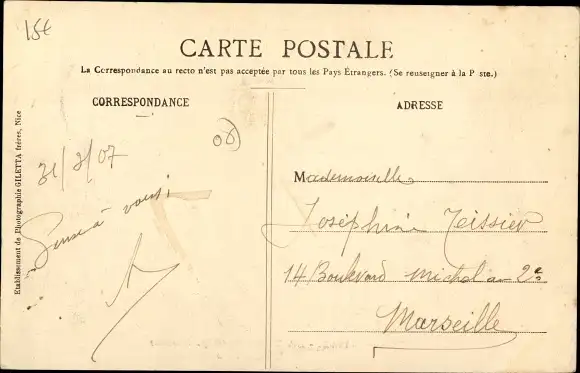 15€
CARTE POSTALE
La Correspondance au recto n'est pas acceptée par tous les Pays Étrangers. (Se renseigner à la P ste.)
CORRESPONDANCE
ADRESSE
Etablissement de Photographie GILETTA frères, Nice
31/3/07
08
Pense à vous;
Mademoiselle
Joséphine Teissier
14 Boulevard Michel an 2e
Marseille